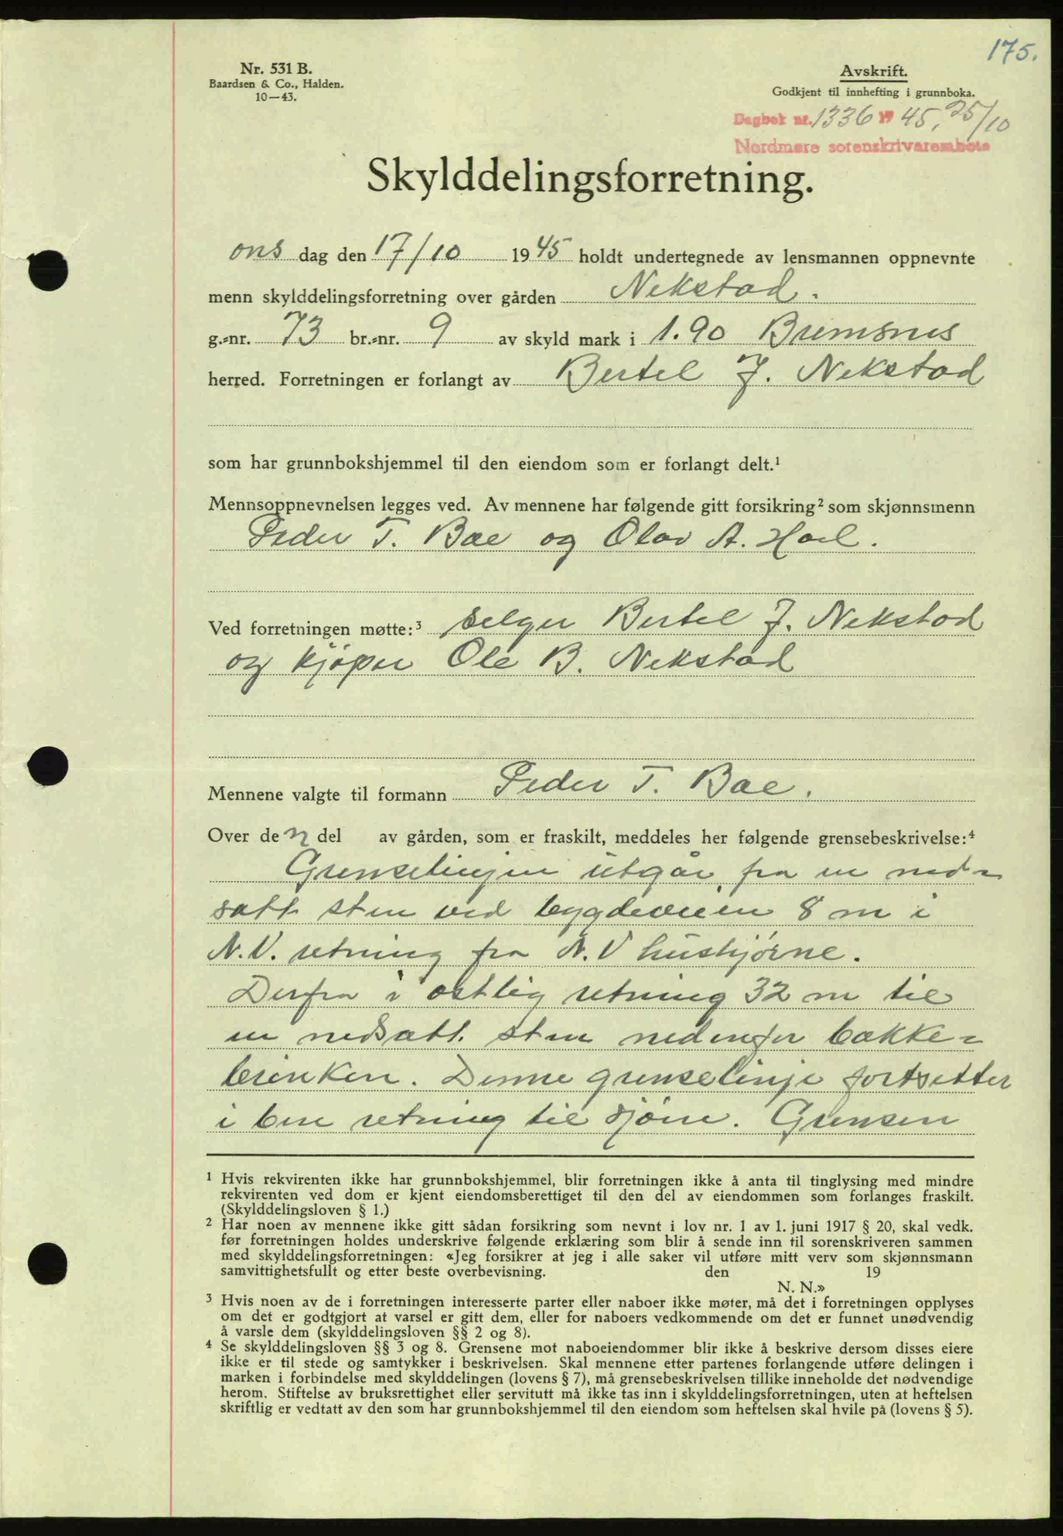 175.
Nr. 531 B.
Baardsen & Co., Halden.
10—43.
Avskrift.
Godkjent til innhefting i grunnboka.
Dagbok nr. 1336 19 45, 25/10
Nordmøre sorenskrivarembete
Skylddelingsforretning.
ons dag den 17/10 1945 holdt undertegnede av lensmannen oppnevnte
menn skylddelingsforretning over gården Nekstad.
g.-nr. 73 br.-nr. 9 av skyld mark i 1.90 Bremsnes
herred. Forretningen er forlangt av Bertel J. Nekstad
som har grunnbokshjemmel til den eiendom som er forlangt delt.¹
Mennsoppnevnelsen legges ved. Av mennene har følgende gitt forsikring² som skjønnsmenn
Peder T. Bae og Olav A. Hoel.
Ved forretningen møtte:³ selger Bertel J. Nekstad
og kjøper Ole B. Nekstad
Mennene valgte til formann Peder T. Bae.
Over den del av gården, som er fraskilt, meddeles her følgende grensebeskrivelse:⁴
Grenselinjen utgår fra en ned-
satt sten ved bygdeveien 8 m i
N.V. retning fra N.V hushjørne.
Derfra i østlig retning 32 m til
en nedsatt sten nedenfor bakke-
brinken. Denne grenselinje fortsetter
i ben retning til sjøen. Grensen
¹ Hvis rekvirenten ikke har grunnbokshjemmel, blir forretningen ikke å anta til tinglysing med mindre
rekvirenten ved dom er kjent eiendomsberettiget til den del av eiendommen som forlanges fraskilt.
(Skylddelingsloven § 1.)
² Har noen av mennene ikke gitt sådan forsikring som nevnt i lov nr. 1 av 1. juni 1917 § 20, skal vedk.
før forretningen holdes underskrive følgende erklæring som blir å sende inn til sorenskriveren sammen
med skylddelingsforretningen: «Jeg forsikrer at jeg i alle saker vil utføre mitt verv som skjønnsmann
samvittighetsfullt og etter beste overbevisning. den 19
N. N.»
³ Hvis noen av de i forretningen interesserte parter eller naboer ikke møter, må det i forretningen opplyses
om det er godtgjort at varsel er gitt dem, eller for naboers vedkommende om det er funnet unødvendig
å varsle dem (skylddelingsloven §§ 2 og 8).
⁴ Se skylddelingsloven §§ 3 og 8. Grensene mot naboeiendommer blir ikke å beskrive dersom disses eiere
ikke er til stede og samtykker i beskrivelsen. Skal mennene etter partenes forlangende utføre delingen i
marken i forbindelse med skylddelingen (lovens § 7), må grensebeskrivelsen tillike inneholde det nødvendige
herom. Stiftelse av bruksrettighet eller servitutt må ikke tas inn i skylddelingsforretningen, uten at heftelsen
skriftlig er vedtatt av den som har grunnbokshjemmel til den eiendom som heftelsen skal hvile på (lovens § 5).